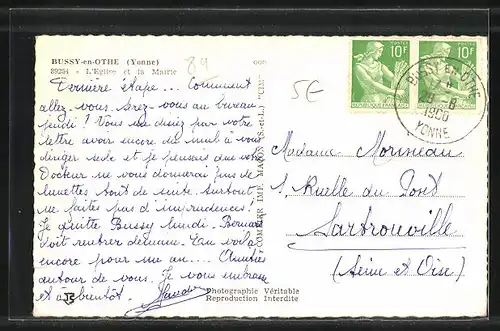 BUSSY-en-OTHE (Yonne)
89254 - L'Eglise et la Mairie
89
Dernière étape... Comment
allez-vous. Serez-vous au bureau
jeudi ? Vous me disiez par votre
lettre avoir encore du mal à vous
diriger seule et je pensais que votre
Docteur ne vous donnerait pas de
lunettes tout de suite. Surtout
ne faites pas d'imprudences !
Je quitte Bussy lundi. Bernard
doit rentrer demain. Eau voilà
encore pour me au.... Amitiés
autour de vous. Je vous embrasse
et à bientôt.
COMBIER IMP. MACON (S.-et-L.) "CIM"
Photographie Véritable
Reproduction Interdite
5€
POSTES
10F
REPUBLIQUE FRANÇAISE
POSTES
10F
BUSSY-EN-OTHE
8
YONNE
Madame Morineau
Ruelle du Pont
Sartrouville
(Seine et Oise)